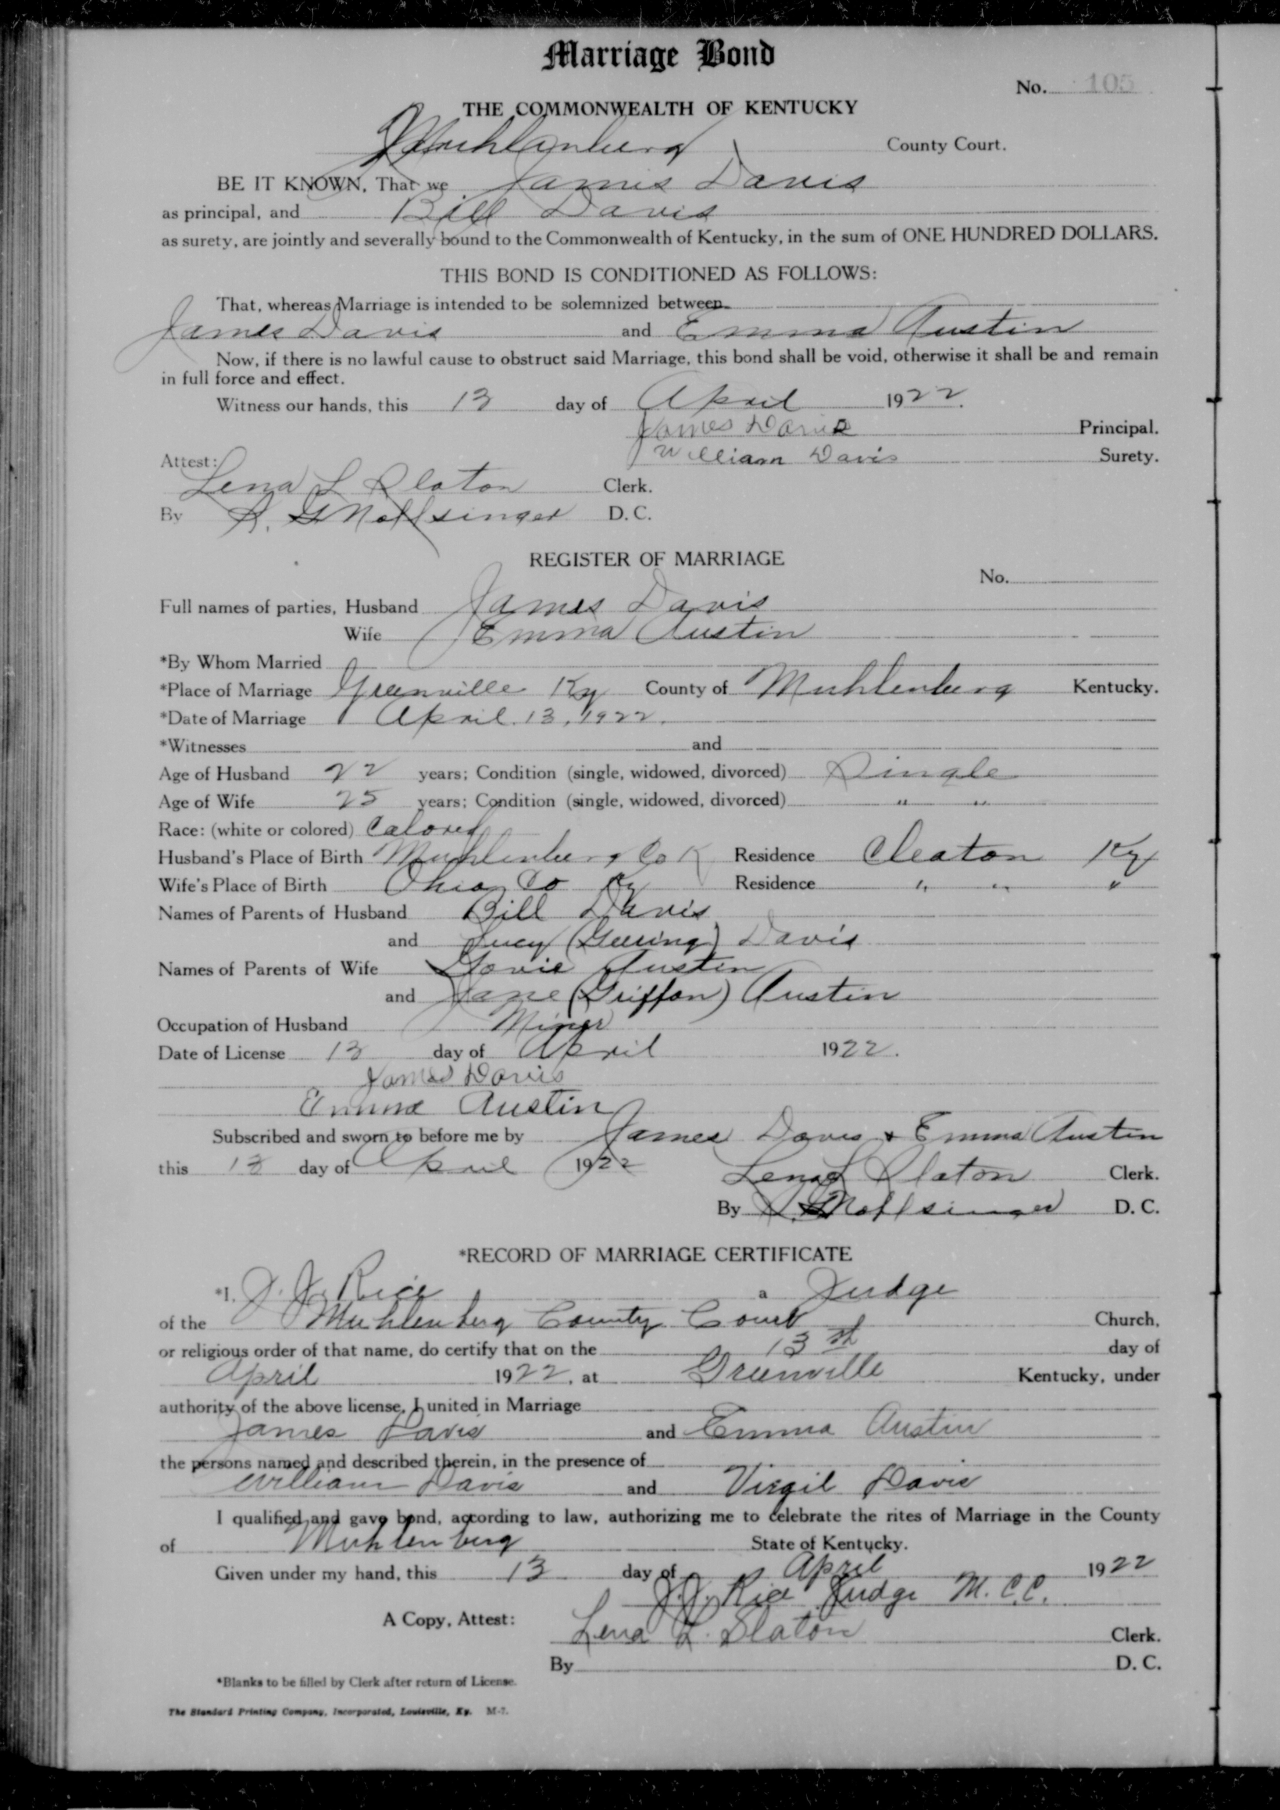 Marriage Bond
No. 105
THE COMMONWEALTH OF KENTUCKY
Muhlenberg County Court.
BE IT KNOWN, That we James Davis
as principal, and Bill Davis
as surety, are jointly and severally bound to the Commonwealth of Kentucky, in the sum of ONE HUNDRED DOLLARS.
THIS BOND IS CONDITIONED AS FOLLOWS:
That, whereas Marriage is intended to be solemnized between
James Davis and Emma Austin
Now, if there is no lawful cause to obstruct said Marriage, this bond shall be void, otherwise it shall be and remain
in full force and effect.
Witness our hands, this 13 day of April 1922.
James Davis Principal.
William Davis Surety.
Attest:
Lena L Slaton Clerk.
By D.C.
REGISTER OF MARRIAGE
No.
Full names of parties, Husband James Davis
Wife Emma Austin
*By Whom Married
*Place of Marriage Greenville Ky County of Muhlenberg Kentucky.
*Date of Marriage April 13, 1922.
*Witnesses and
Age of Husband 22 years; Condition (single, widowed, divorced) Single
Age of Wife 25 years; Condition (single, widowed, divorced) " "
Race: (white or colored) Colored
Husband's Place of Birth Muhlenberg Co K Residence Cleaton Ky
Wife's Place of Birth Ohio Co Ky Residence " " "
Names of Parents of Husband Bill Davis
and Lucy (Geering) Davis
Names of Parents of Wife Austin
and Jane (Griffon) Austin
Occupation of Husband Miner
Date of License 13 day of April 1922.
James Davis
Emma Austin
Subscribed and sworn to before me by James Davis + Emma Austin
this 13 day of April 1922
Lena L Slaton Clerk.
By D.C.
*RECORD OF MARRIAGE CERTIFICATE
*I, J. J. Rice a Judge
of the Muhlenberg County Court Church,
or religious order of that name, do certify that on the 13th day of
April 1922, at Greenville Kentucky, under
authority of the above license, I united in Marriage
James Davis and Emma Austin
the persons named and described therein, in the presence of
William Davis and Virgil Davis
I qualified and gave bond, according to law, authorizing me to celebrate the rites of Marriage in the County
of Muhlenberg State of Kentucky.
Given under my hand, this 13 day of April 1922
J.J. Rice Judge M.C.C.
A Copy, Attest: Lena L. Slaton Clerk.
By D.C.
*Blanks to be filled by Clerk after return of License.
The Standard Printing Company, Incorporated, Louisville, Ky. M-7.